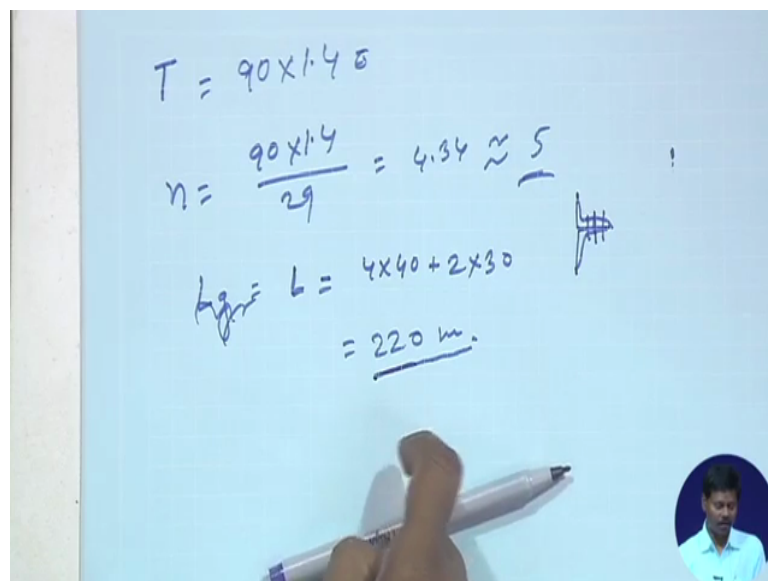 T = 90×1.4 σ
n = 90×1.4 / 29 = 4.34 ≈ 5
Lg = L = 4×40 + 2×30
= 220 m.